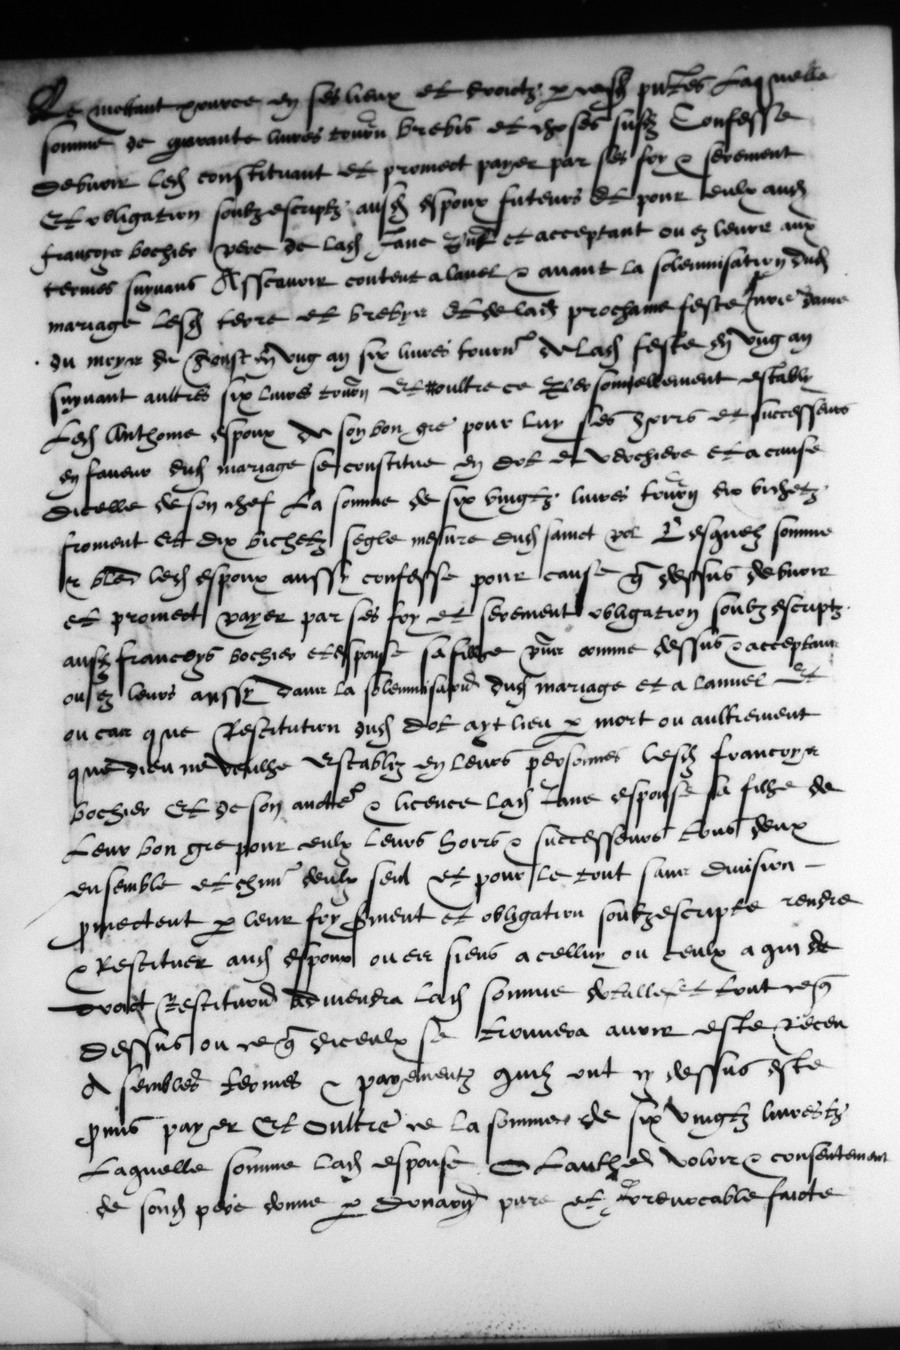 Le mettant porce en ses lieux et droictz p cesd pntes Laquelle
somme de quarante livres tourn brebis et choses susd Confesse
debvoir led constituant et promect payer par ses foy & serement
Et obligation soubzescriptz ausd espoux futeurs et pour eulx aud
francoys bochier pere de lad Jane pnt et acceptant ou ez leurs aux
termes suyvans Asscavoir content a lavel & avant la solempnisation dud
mariage lesd terre et brebys Et de lad prochaine feste nre dame
du moys de en ung an six livres tourn de lad feste en ung an
suyvant aultres six livres tourn Et oultre ce personnellement estably
Led Anthome espoux de son bon gre pour luy ses hoirs et successeurs
en faveur dud mariage se constitue en dot et et a cause
dicelle de son chef La somme de six vingtz livres tourn dix bichetz
froment Et dix bichetz segle mesure dud sainct pol Lesquelz somme
& bled led espoux aussy confesse pour cause q dessus debvoir
et promect payer par ses foy et serement obligation soubzescriptz
ausd francoys bochier et espouse sa fille pns comme dessus & acceptans
ou ez leurs aussy dans la solempnisaon dud mariage et a lanuel Et
ou cas que Restitution dud dot ayt lieu p mort ou aultrement
que dieu ne veulhe Establiz en leurs personnes lesd francoys
bochier Et de son aucte & licence lad Jane espouse sa filhe de
Leur bon gre pour eulx leurs hoirs & successeurs tous deux
ensemble et chun deulx seul et pour le tout sans division
pmectent p leur foy sment et obligation soubzescripte rendre
& Restituer aud espoux ou es siens a celluy ou ceulx a qui de
droict Restituon adviendra lad somme et tout ce q
dessus ou ce q diceulx se trouvera avoir este Receu
A sembles termes & payementz quilz ont cy dessus este
pmis payer Et oultre ce la somme de six vingtz livres tz
Laquelle somme lad espouse de voloir & consentement
de sond pere donne p donaon pure et irrevocable faicte